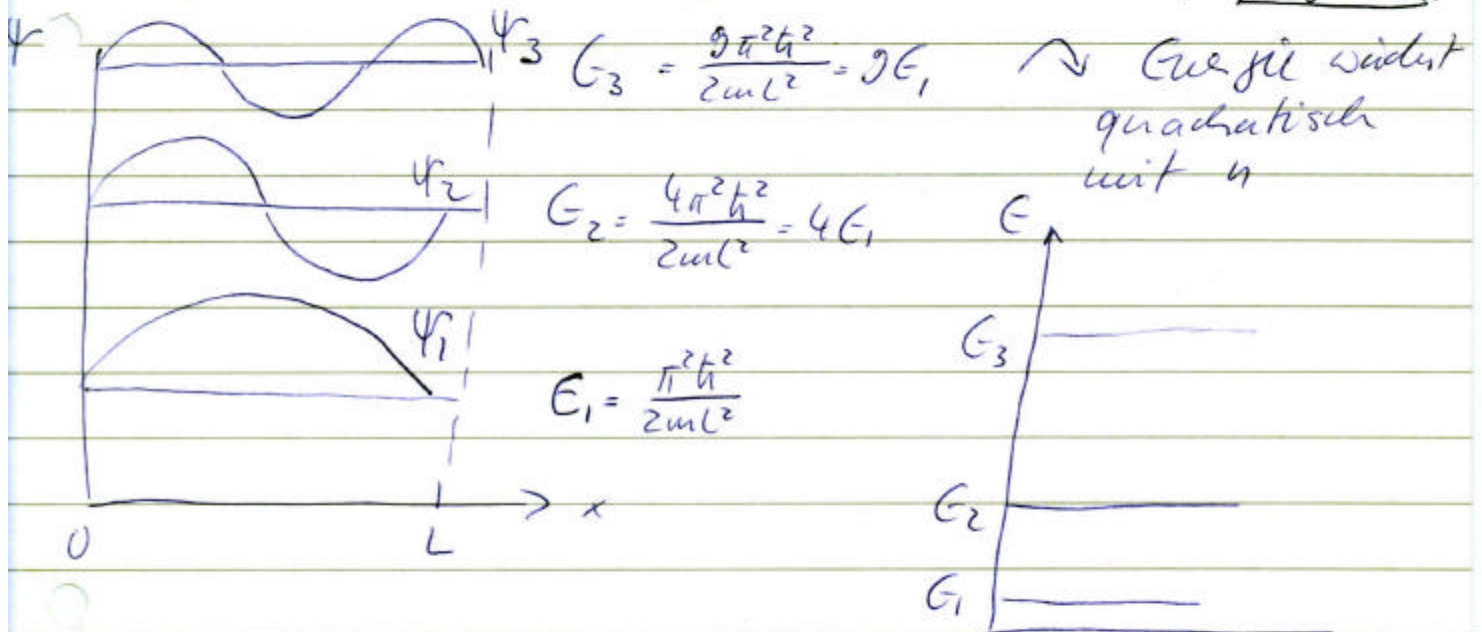 ψ
ψ₃ E₃ = 9π²ħ²/2mL² = 9E₁ ↷ Energie wächst
quadratisch
mit n
ψ₂ E₂ = 4π²ħ²/2mL² = 4E₁
ψ₁ E₁ = π²ħ²/2mL²
x
0 L
E
E₃
E₂
E₁